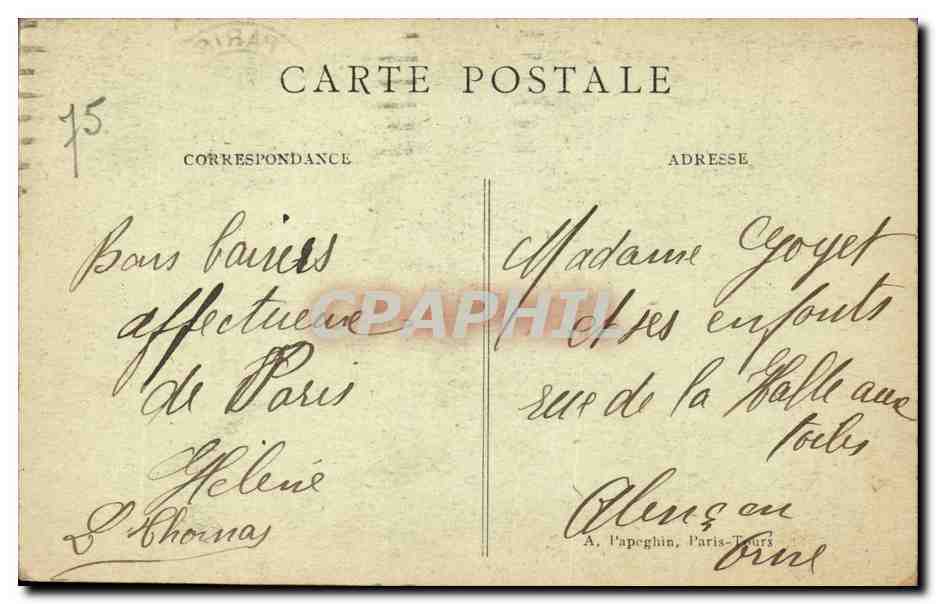 PARIS
CARTE POSTALE
75
CORRESPONDANCE
Bons baisers
affectueux
de Paris
Hélène
L Thomas
ADRESSE
Madame Goyet
et ses enfants
rue de la Halle aux
toiles
Alençon
Orne
A. Papeghin, Paris-Tours
CPAPHIL